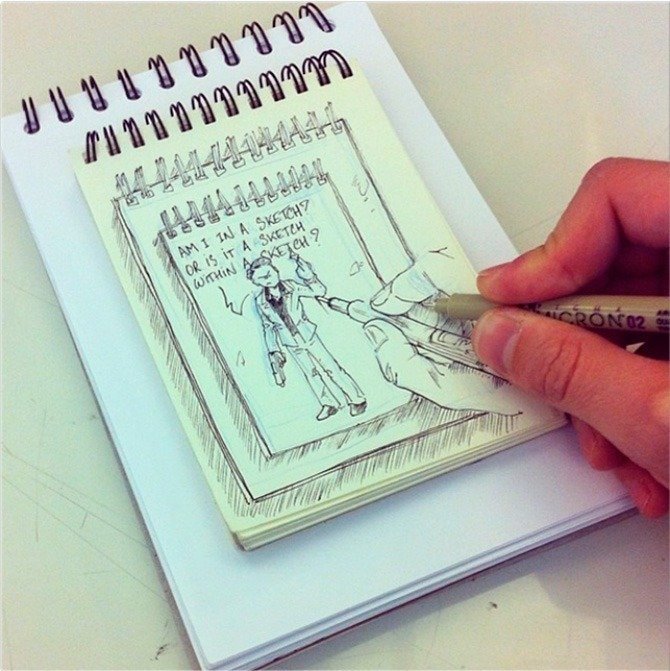 AM I IN A SKETCH?
OR IS IT A SKETCH
WITHIN A SKETCH?
MICRON 02